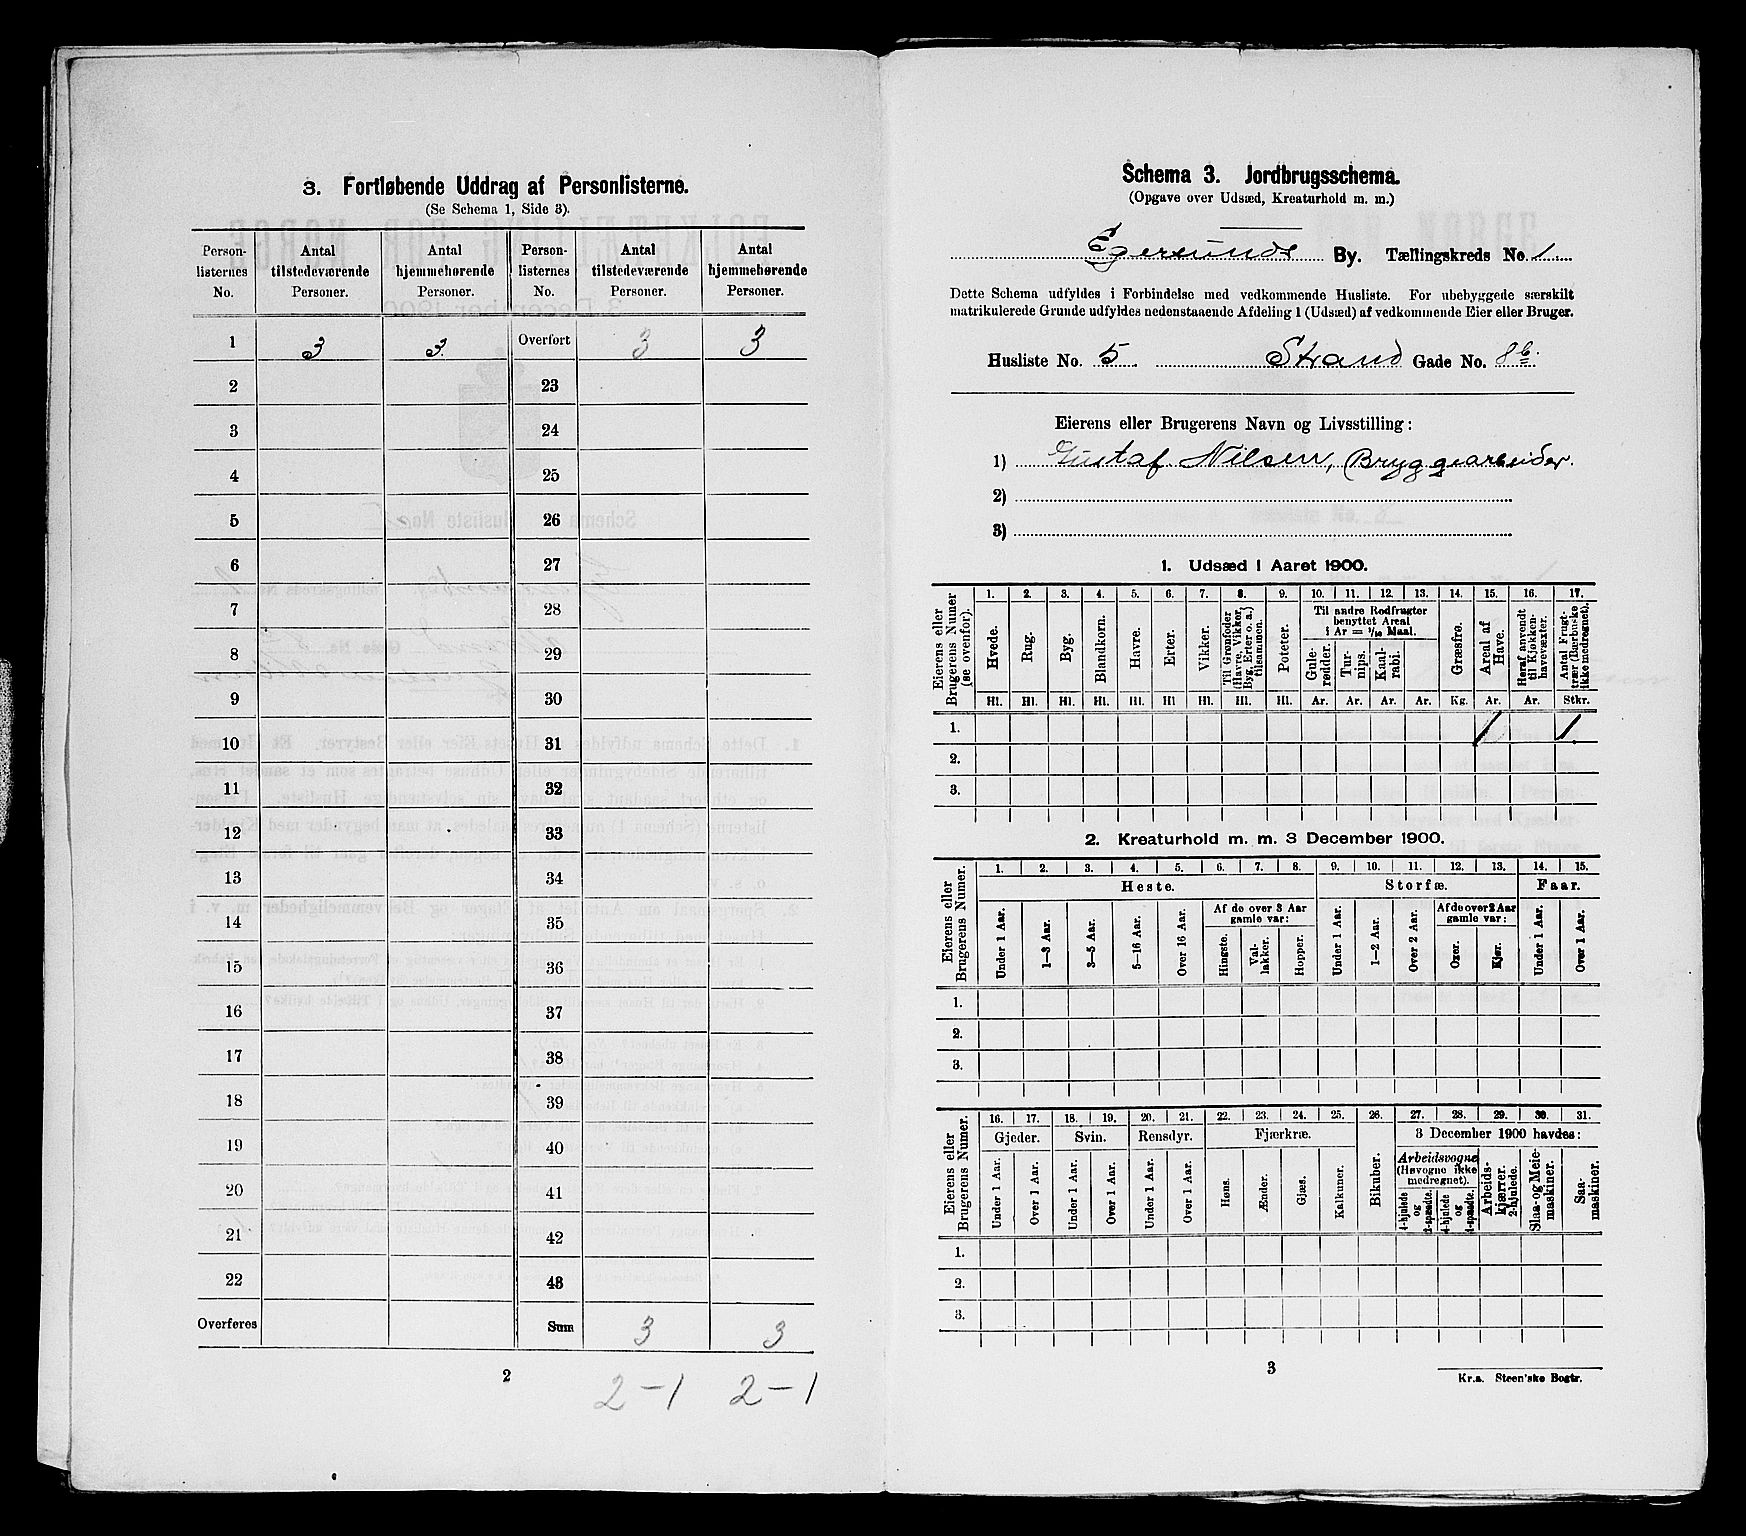 3. Fortløbende Uddrag af Personlisterne.
(Se Schema 1, Side 3).
Person-listernes No. | Antal tilstedeværende Personer. | Antal hjemmehørende Personer. | Person-listernes No. | Antal tilstedeværende Personer. | Antal hjemmehørende Personer.
1 | 3 | 3. | Overført | 3 | 3
2 | | | 23
3 | | | 24
4 | | | 25
5 | | | 26
6 | | | 27
7 | | | 28
8 | | | 29
9 | | | 30
10 | | | 31
11 | | | 32
12 | | | 33
13 | | | 34
14 | | | 35
15 | | | 36
16 | | | 37
17 | | | 38
18 | | | 39
19 | | | 40
20 | | | 41
21 | | | 42
22 | | | 43
Overføres | | | Sum | 3 | 3
2
2-1 2-1
Schema 3. Jordbrugsschema.
(Opgave over Udsæd, Kreaturhold m. m.)
Egersunds By. Tællingskreds No. 1
Dette Schema udfyldes i Forbindelse med vedkommende Husliste. For ubebyggede særskilt
matrikulerede Grunde udfyldes nedenstaaende Afdeling 1 (Udsæd) af vedkommende Eier eller Bruger.
Husliste No. 5. Strand Gade No. 8b.
Eierens eller Brugerens Navn og Livsstilling:
1) Gustaf Nilsen, Bryggearbeider.
2)
3)
1. Udsæd i Aaret 1900.
Eierens eller Brugerens Numer (se ovenfor).
1. 2. 3. 4. 5. 6. 7. 8. 9. 10. 11. 12. 13. 14. 15. 16. 17.
Til andre Rodfrugter benyttet Areal i Ar = 1/10 Maal.
Hvede. Rug. Byg. Blandkorn. Havre. Erter. Vikker. Til Grønfoder (Havre, Vikker, Byg, Erter o. a.) tilsammen. Poteter. Gule-rødder. Tur-nips. Kaal-rabi. Græsfrø. Areal af Have. Heraf anvendt til Kjøkken-havevæxter. Antal Frugt-trær (Bærbuske ikke medregnet).
Hl. Hl. Hl. Hl. Hl. Hl. Hl. Hl. Hl. Ar. Ar. Ar. Ar. Kg. Ar. Ar. Stkr.
1. 1 1.
2.
3.
2. Kreaturhold m. m. 3 December 1900.
Eierens eller Brugerens Numer.
1. 2. 3. 4. 5. 6. 7. 8. 9. 10. 11. 12. 13. 14. 15.
Heste. Storfæ. Faar.
Af de over 3 Aar gamle var: Af de over 2 Aar gamle var:
Under 1 Aar. 1—3 Aar. 3—5 Aar. 5—16 Aar. Over 16 Aar. Hingste. Val-lakker. Hopper. Under 1 Aar. 1—2 Aar. Over 2 Aar. Oxer. Kjør. Under 1 Aar. Over 1 Aar.
1.
2.
3.
Eierens eller Brugerens Numer.
16. 17. 18. 19. 20. 21. 22. 23. 24. 25. 26. 27. 28. 29. 30. 31.
Gjeder. Svin. Rensdyr. Fjærkræ. 3 December 1900 havdes:
Arbeidsvogne (Høvogne ikke medregnet).
Under 1 Aar. Over 1 Aar. Under 1 Aar. Over 1 Aar. Under 1 Aar. Over 1 Aar. Høns. Ænder. Gjæs. Kalkuner. Bikuber. 4-hjulede og 2-spændte. 4-hjulede og 1-spændte. Arbeids-kjærrer. 2-hjulede. Slaa- og Meie-maskiner. Saa-maskiner.
1.
2.
3.
3
Kr.a. Steen'ske Bogtr.